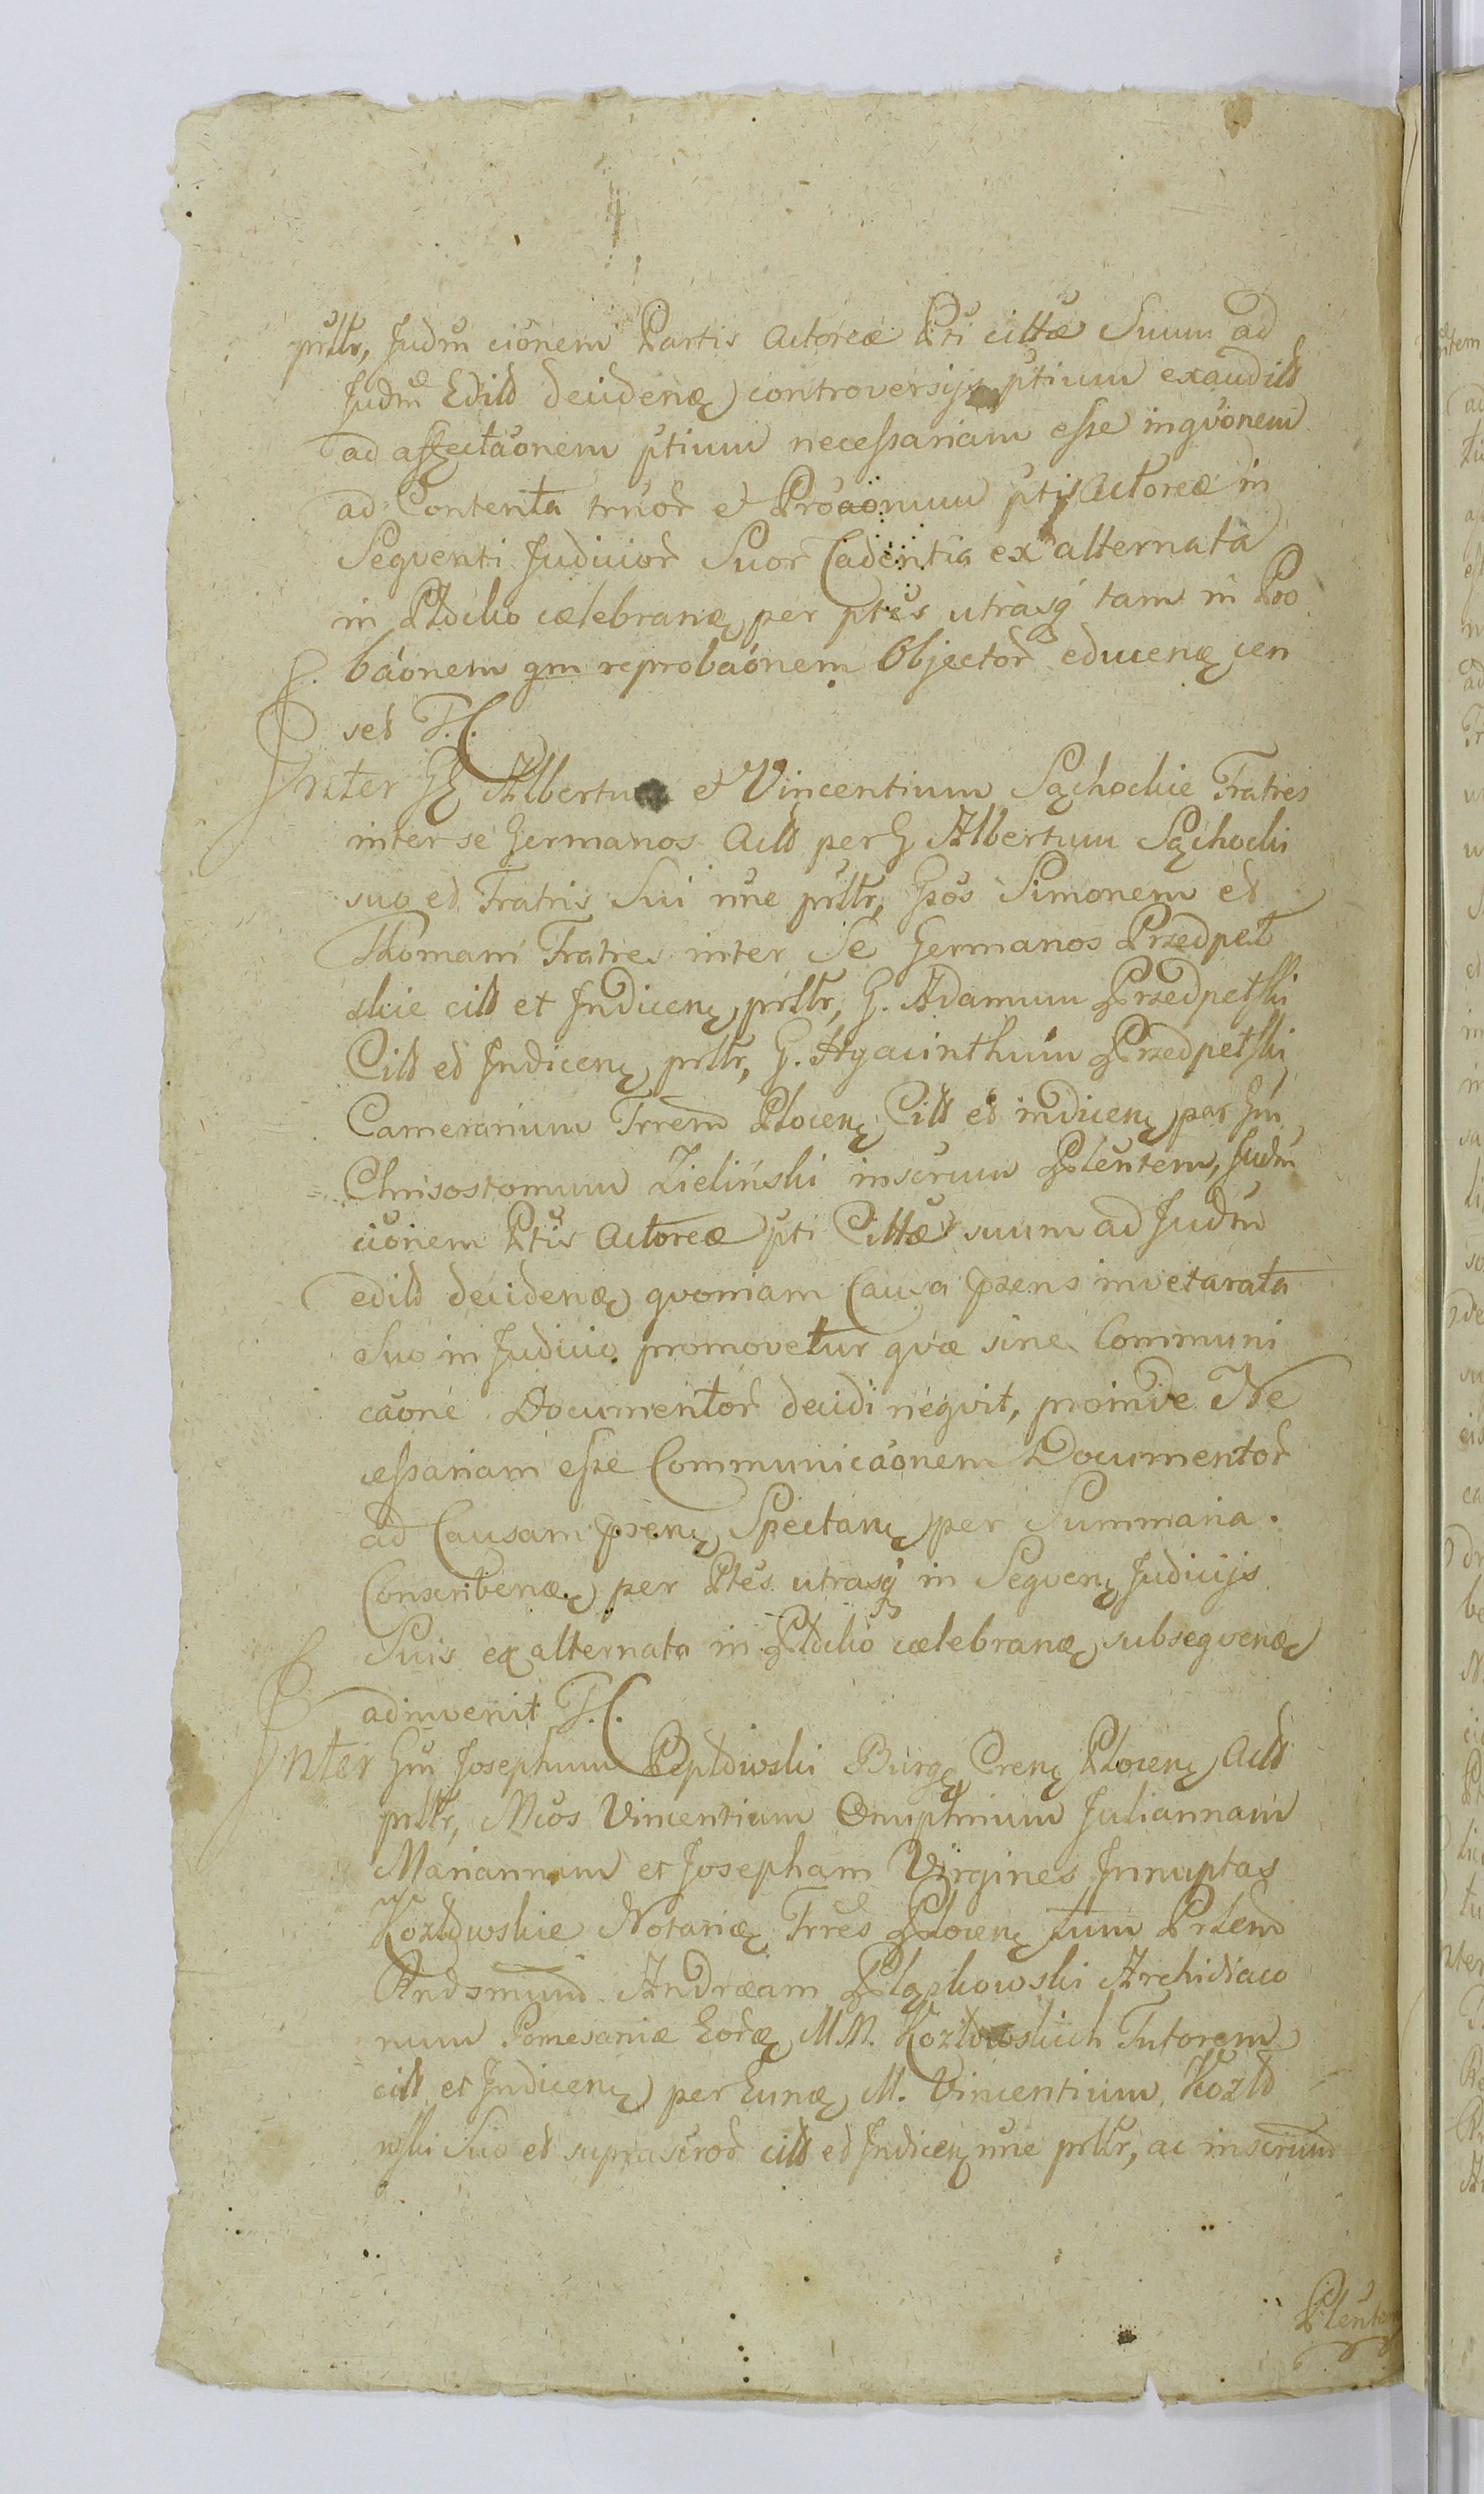 prłłr, Judm cionem Partis Actoreæ Pti cittæ Suum ad
Judm Edild decidenæ controversijs ptium exaudild
ad affectaonem ptium necessariam esse inqvonem
ad Contenta truor et Proaonum ptis Actoreæ in
Seqventi Judicior Suor Cadentia ex alternata
in Płocko cælebranæ per ptes utrasq tam in Pro
baonem qm reprobaonem Objector educenæ cen
set T.C.
Inter GG Albertum et Vincentium Sąchockie Fratres
inter se Germanos Actt per G Albertum Sąchocki
suo et Fratris Sui nne prłłr, Gsos Simonem et
Thomam Fratres inter Se Germanos Przedpeł
skie citt et Indicen prłłr, G. Adamum Przedpełski
Citt et Indicen prłłr, G. Hyacinthum Przedpełski
Camerarium Trrem Plocen Citt et indicen per Gm
Chrisostomum Zieliński inscrum Plentem, Judm
cionem Ptis Actoreæ pti Cittæ suum ad Judm
edild decidenæ qvoniam Causa Psens invetarata
Suo in Judicio promovetur qvæ sine Communi
caone Documentor decidi neqvit, proinde Ne
cessariam esse Communicaonem Documentor
ad Causam psen Spectan per Summaria
Conscribenæ per Ptes utrasq in Seqven Judicijs
Suis ex alternata in Płocko cælebranæ subseqvenæ
adinvenit T.C.
Inter Gm Josephum Pepłowski Burg Cren Plocen Actt
prłłr, Mcos Vincentium Onuphrium Juliannam
Mariannam et Josepham Virgines Innuptas
Kozłowskie Notariæ Trres Plocen tum Prlem
Rndsmum Andræam Pląskowski Archidiaco
num Pomesaniæ Eordæ MM. Kozłowskich Tutorem
citt et Indicen per Eunæ M. Vincentium Kozło
wski Suo et suprascror citt et Indicen nne prłłr, ac inscrum
Plentem